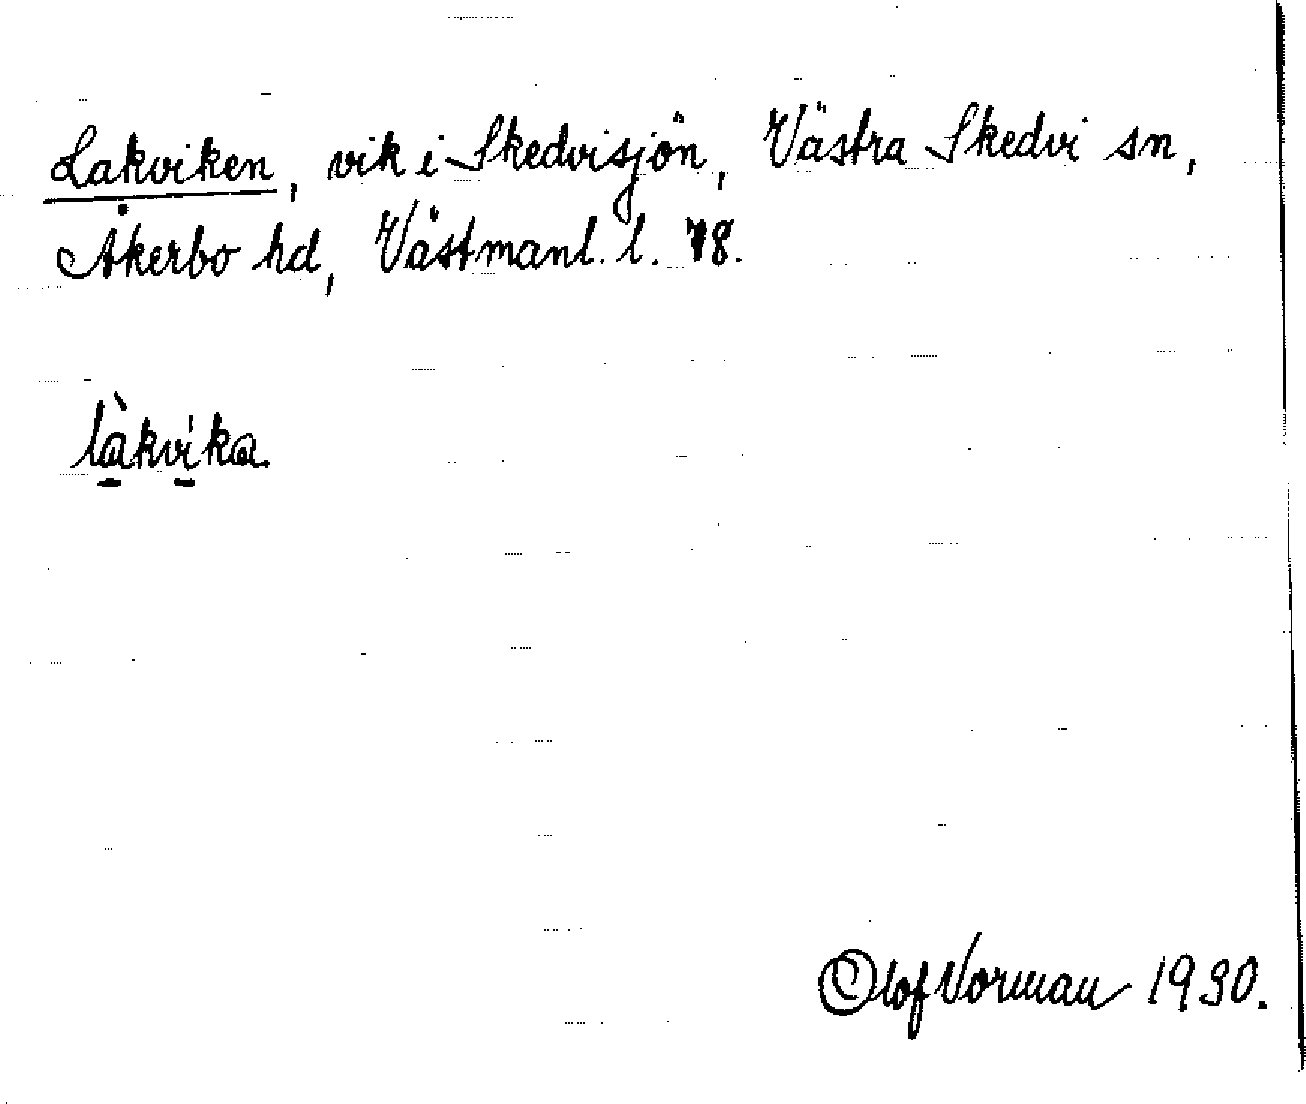 Lakviken, vik i Skedvisjön, Västra Skedvi sn,
Åkerbo hd, Västmanl. l. 78.
làkvika.
Olof Norman 1930.